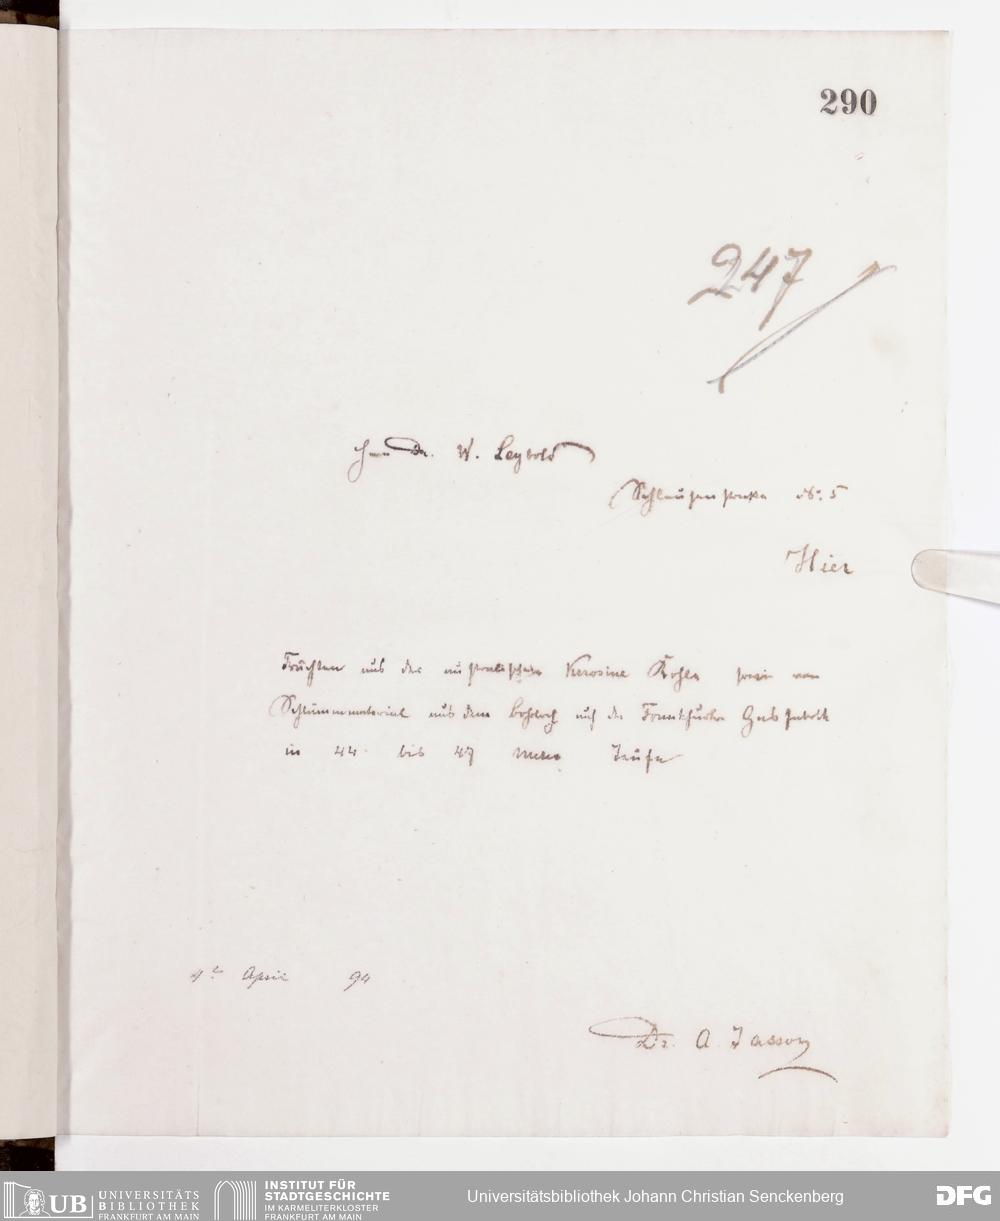 290
247
Herrn Dr. W. Leybold
Schleusenstrasse No. 5
Hier
Früchten aus der australischen Kerosine Kohle sowie von
Schlämmmaterial aus dem Bohrloch auf der Frankfurter Gasfabrik
in 44 bis 47 Meter Teufe
April 94
Dr. A.
UB UNIVERSITÄTS
BIBLIOTHEK
FRANKFURT AM MAIN
INSTITUT FÜR
STADTGESCHICHTE
IM KARMELITERKLOSTER
FRANKFURT AM MAIN
Universitätsbibliothek Johann Christian Senckenberg
DFG